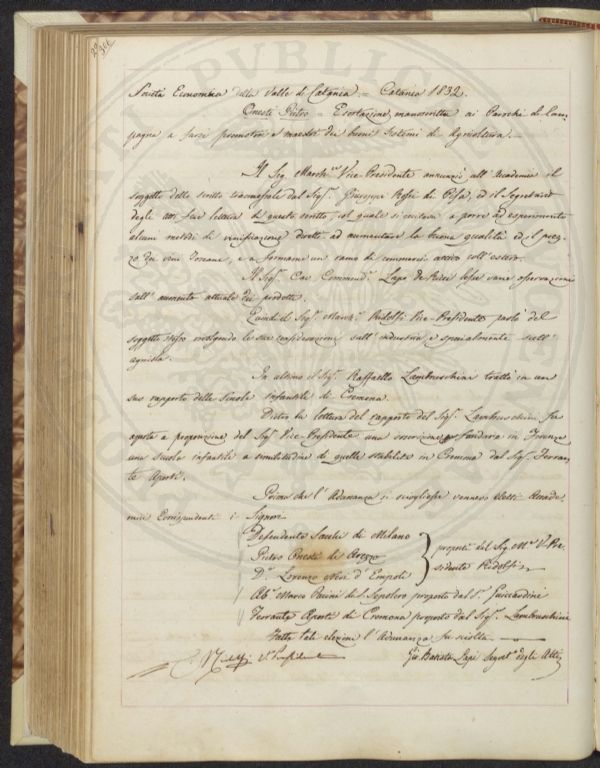 Società Economica della Valle di Catania = Catania 1832.
Onesti Pietro = Esortazione manoscritta ai Parochi di Cam-
pagna a farsi promotori e maestri dei buoni sistemi di Agricoltura. =
Il Sig. March. Vice-Presidente annunziò all'Accademia il
soggetto dello scritto trasmessale dal Sig. Giuseppe di Pisa, ed il Segretario
degli atti fece lettura di questo scritto, col quale si a porre ad esperimento
alcuni metodi di vinificazione diretti ad aumentare la buona qualità ed il prez-
zo dei vini Toscani, e a formarne un ramo di commercio attivo coll'estero.
Il Sig. Cav. Commend. Lapo de Ricci lesse varie osservazioni
sull'aumento attuale dei prodotti.
Quindi il Sig. March. Ridolfi Vice-Presidente parlò del
soggetto stesso svolgendo le sue considerazioni sull'industria e specialmente sull'
agricola.
In ultimo il Sig. Raffaello Lambruschini trattò in un
suo rapporto delle Scuole infantili di Cremona.
Dietro la lettura del rapporto del Sig. Lambruschini fu
aperta a proposizione del Sig. Vice-Presidente una soscrizione per fondare in Firenze
una scuola infantile a similitudine di quelle stabilite in Cremona dal Sig. Ferran-
te Aporti.
Prima che l'Adunanza si sciogliesse vennero eletti Accade-
mici Corrispondenti i Signori
Defendente Sacchi di Milano
Pietro Onesti di Arezzo
D. Lorenzo Neri d'Empoli
proposti dal Sig. M. V. Pre-
sidente Ridolfi
Ab. Marco Pacini di S. Sepolcro proposto dal S. Guicciardini
Ferrante Aporti di Cremona proposto dal Sig. Lambruschini
Fatte tali elezioni l'Adunanza fu sciolta
C. Ridolfi V. Presidente
Gio. Batista Lapi Segret. degli Atti